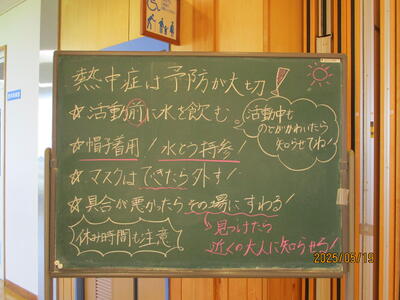 熱中症は予防が大切!
☆活動前に水を飲む
活動中も
のどがかわいたら
知らせてね!
☆帽子着用!水とう持参!
☆マスクはできたら外す!
☆具合が悪かったらその場にすわる!
見つけたら
近くの大人に知らせる!
休み時間も注意
2025/05/19